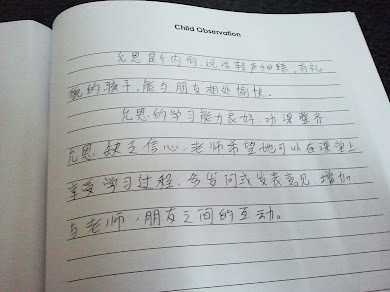 Child Observation
允恩是个内向,说话轻声细语,有礼
貌的孩子,能与朋友相处愉快。
允恩的学习能力良好,功课整齐
允恩缺乏信心,老师希望她可以在课堂上
享受学习过程,多发问或发表意见增加
与老师,朋友之间的互动。